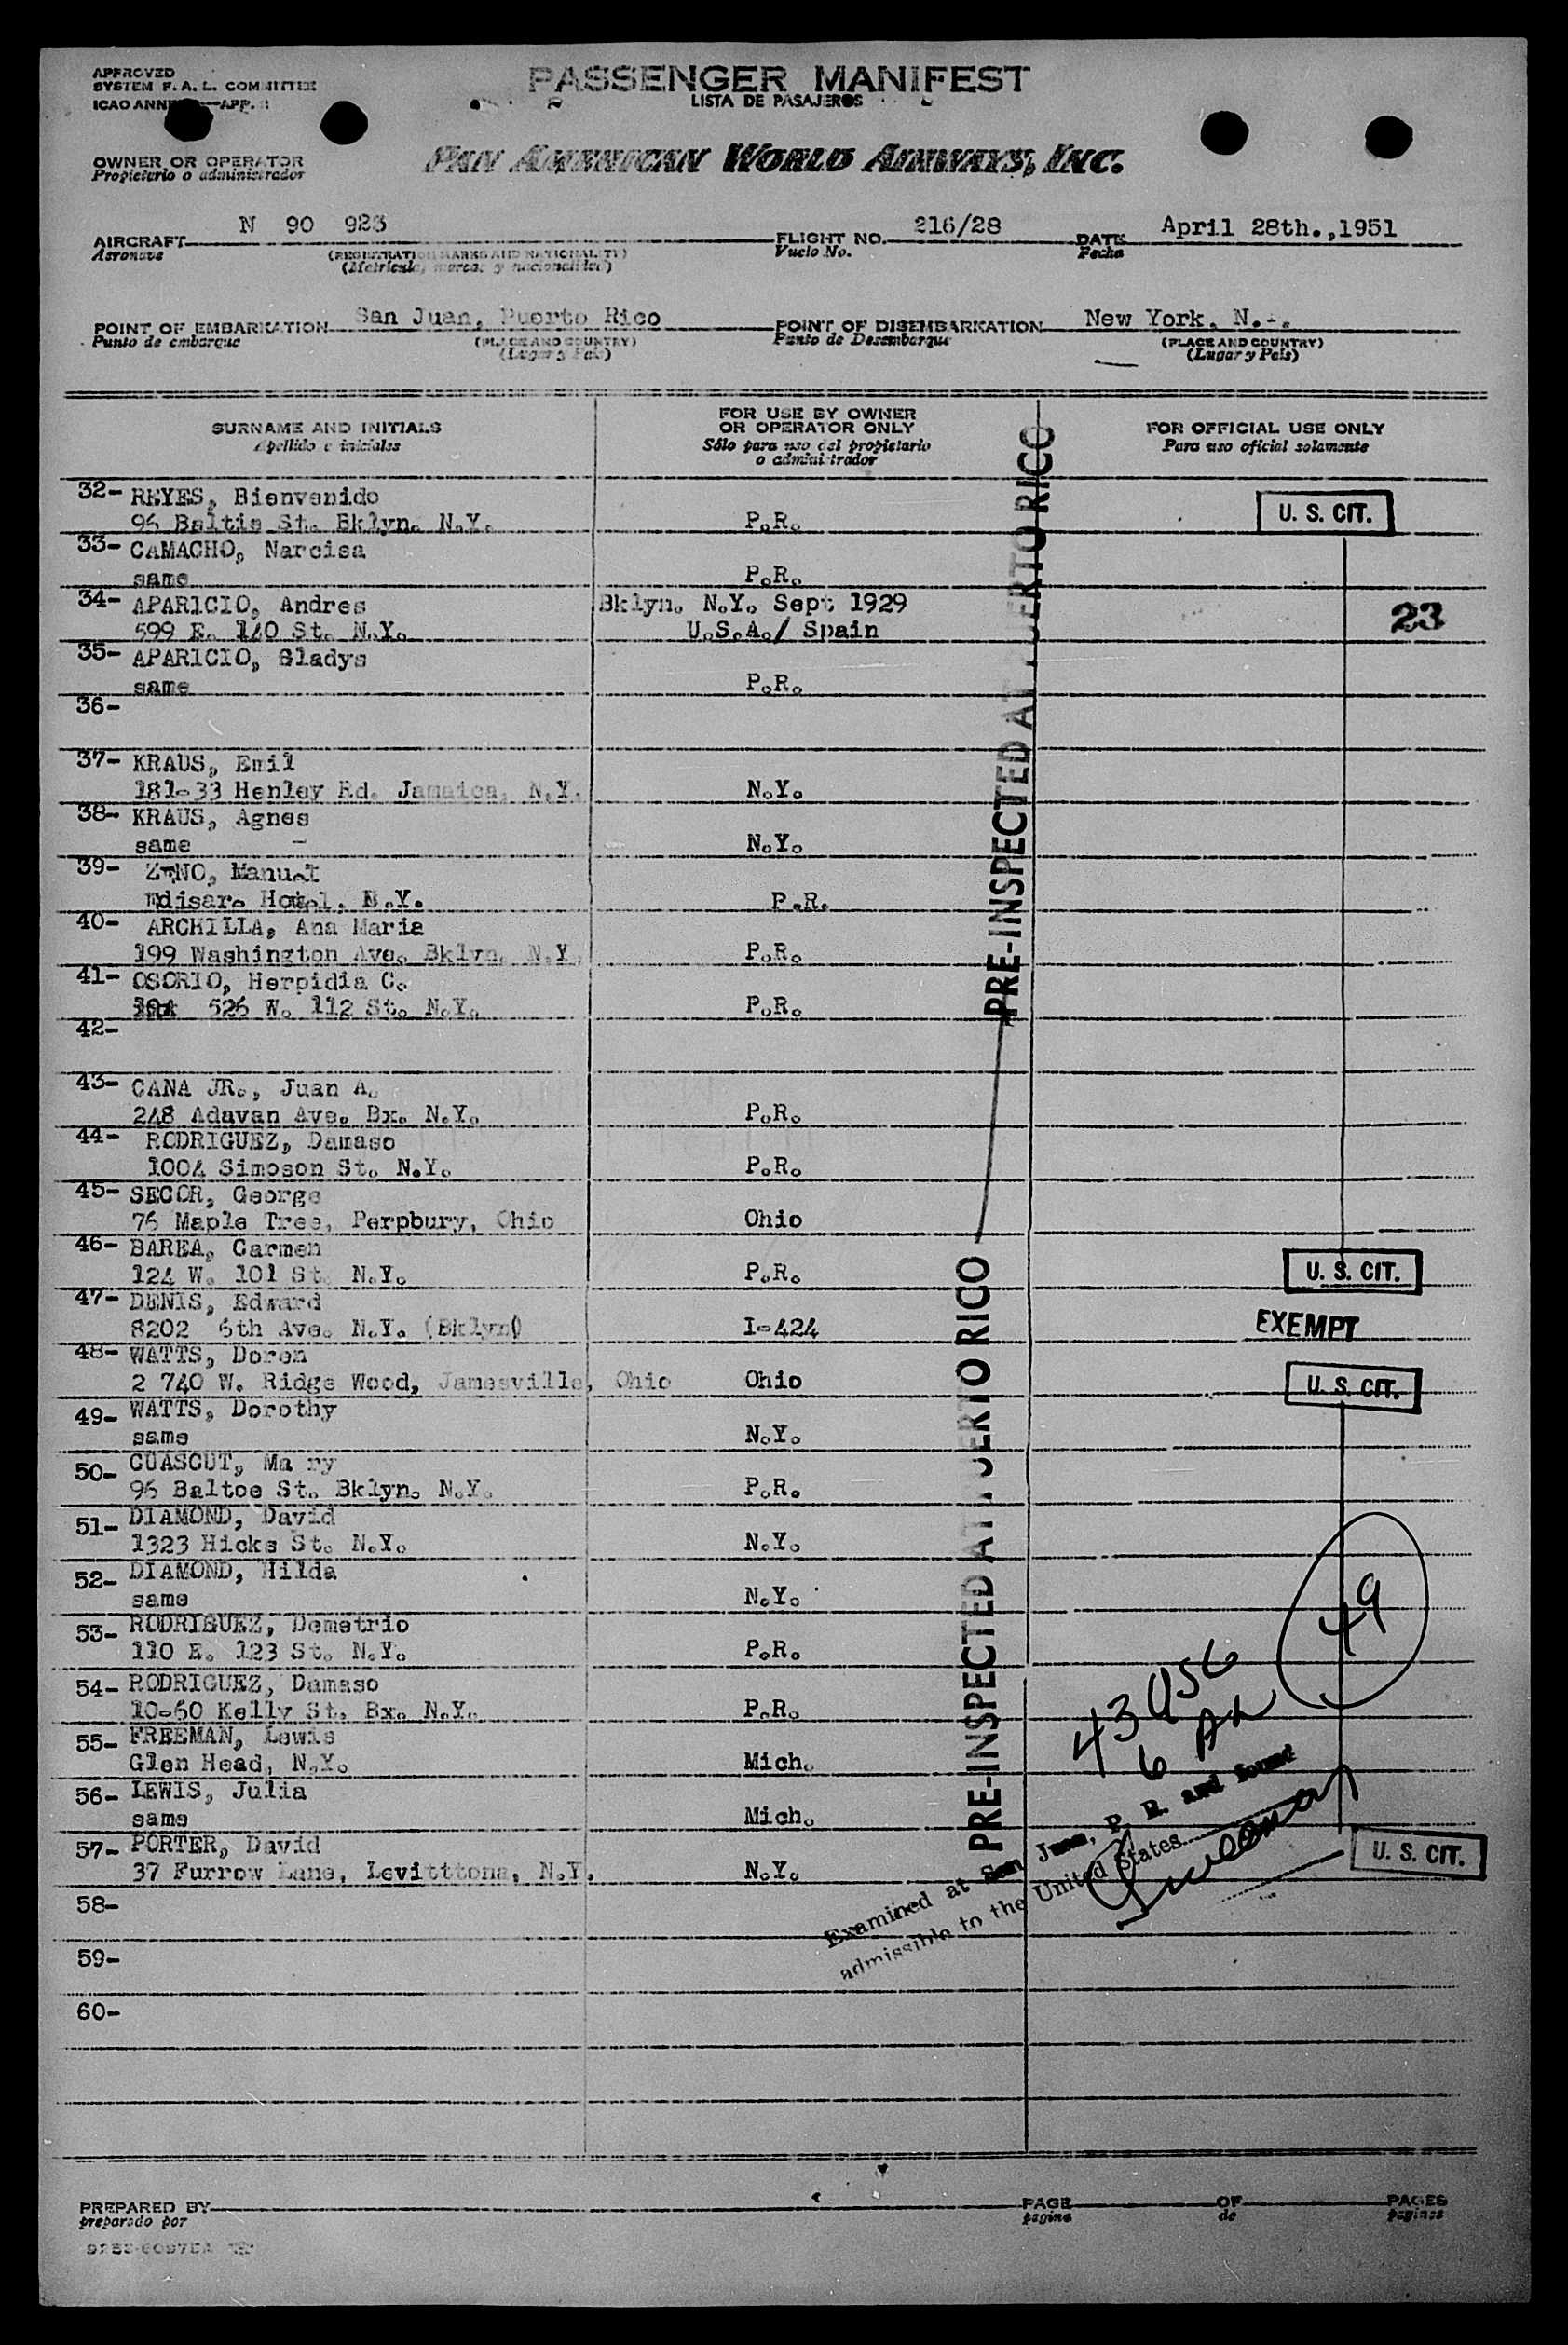 APPROVED
SYSTEM F. A. L. COMMITTEE
ICAO ANNEX —APP.
PASSENGER MANIFEST
LISTA DE PASAJEROS
OWNER OR OPERATOR
Propietario o administrador
PAN AMERICAN WORLD AIRWAYS, INC.
AIRCRAFT N 90 923
Aeronave
(REGISTRATION MARKS AND NATIONALITY)
(Matricula, marcas y nacionalidad)
FLIGHT NO. 216/28
Vuelo No.
DATE April 28th.,1951
Fecha
POINT OF EMBARKATION San Juan, Puerto Rico
Punto de embarque
(PLACE AND COUNTRY)
(Lugar y País)
POINT OF DISEMBARKATION New York, N.
Punto de Desembarque
(PLACE AND COUNTRY)
(Lugar y País)
SURNAME AND INITIALS
Apellido e iniciales
FOR USE BY OWNER
OR OPERATOR ONLY
Sólo para uso del propietario
o administrador
FOR OFFICIAL USE ONLY
Para uso oficial solamente
32- REYES, Bienvenido
96 Baltis St. Bklyn. N.Y. P.R. U. S. CIT.
33- CAMACHO, Narcisa
same P.R.
34- APARICIO, Andres Bklyn. N.Y. Sept 1929 23
599 E. 140 St. N.Y. U.S.A./ Spain
35- APARICIO, Gladys
same P.R.
36-
37- KRAUS, Emil
181-33 Henley Rd. Jamaica, N.Y. N.Y.
38- KRAUS, Agnes
same N.Y.
39- ZENO, Manuel
Hotel, N.Y. P.R.
40- ARCHILLA, Ana Maria
199 Washington Ave. Bklyn. N.Y. P.R.
41- OSORIO, Herpidia C.
526 W. 112 St. N.Y. P.R.
42-
43- CANA JR., Juan A.
248 Adavan Ave. Bx. N.Y. P.R.
44- RODRIGUEZ, Damaso
1004 Simpson St. N.Y. P.R.
45- SECOR, George
76 Maple Tree, Perpbury, Ohio Ohio
46- BAREA, Carmen
124 W. 101 St. N.Y. P.R. U. S. CIT.
47- DENIS, Edward
8202 6th Ave. N.Y. (Bklyn) I-424 EXEMPT
48- WATTS, Doren
2 740 W. Ridge Wood, Jamesville, Ohio Ohio U. S. CIT.
49- WATTS, Dorothy
same N.Y.
50- CUASCUT, Ma ry
96 Baltoe St. Bklyn. N.Y. P.R.
51- DIAMOND, David
1323 Hicks St. N.Y. N.Y.
52- DIAMOND, Hilda
same N.Y.
49
53- RODRIGUEZ, Demetrio
110 E. 123 St. N.Y. P.R.
54- RODRIGUEZ, Damaso
10-60 Kelly St. Bx. N.Y. P.R.
55- FREEMAN, Lewis
Glen Head, N.Y. Mich.
56- LEWIS, Julia
same Mich.
57- PORTER, David
37 Furrow Lane, Levitttona, N.Y. N.Y. U. S. CIT.
58-
59-
60-
PRE-INSPECTED AT PUERTO RICO
PRE-INSPECTED AT PUERTO RICO
Examined at San Juan, P. R. and found
admissible to the United States
PREPARED BY
preparado por
PAGE OF PAGES
pagina de paginas